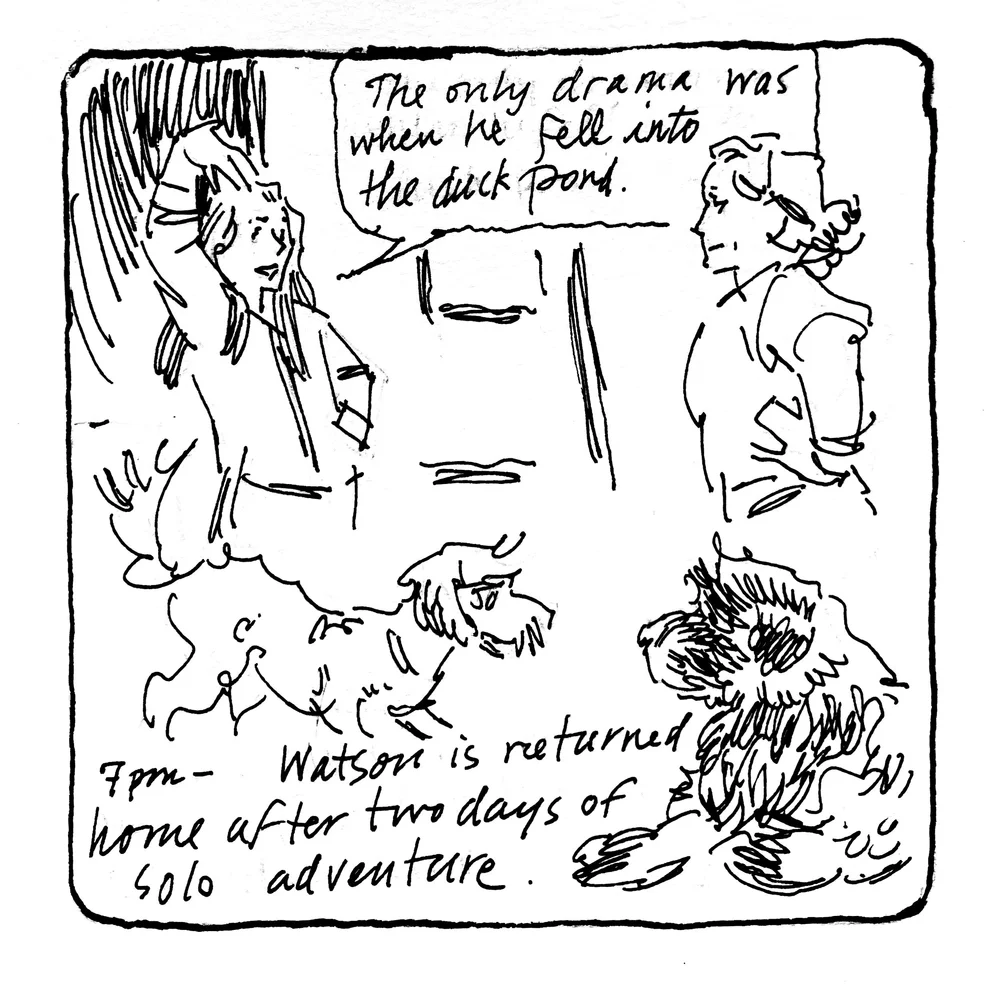 The only drama was
when he fell into
the duck pond.
7pm- Watson is returned
home after two days of
solo adventure.